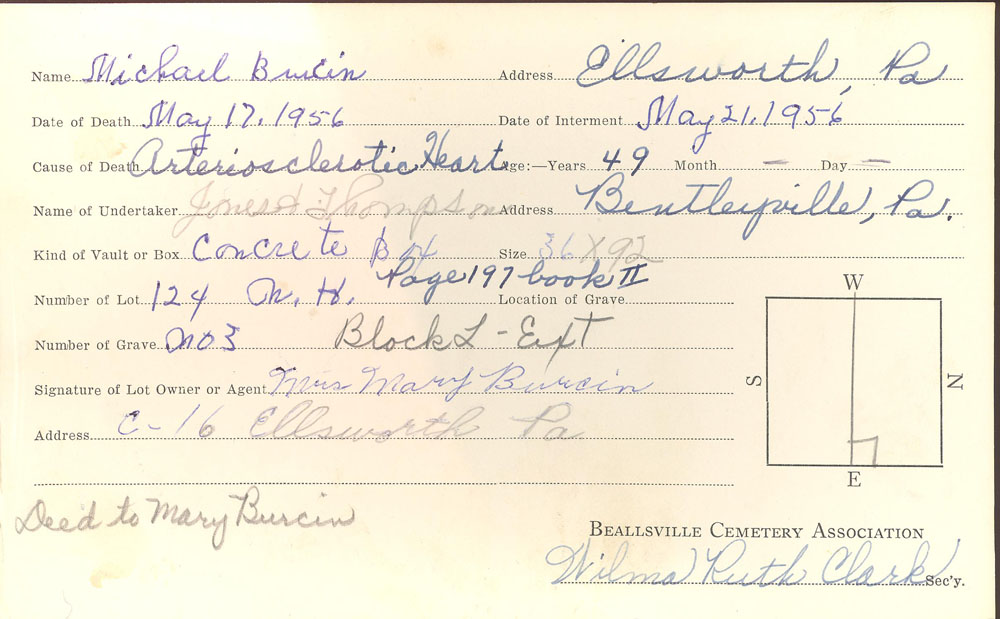 Name Michael Burcin Address Ellsworth, Pa
Date of Death May 17, 1956 Date of Interment May 21, 1956
Cause of Death Arteriosclerotic Heart Age:—Years 49 Month — Day —
Name of Undertaker Jones & Thompson Address Bentleyville, Pa.
Kind of Vault or Box Concrete Box Size 36 X 92
Page 197 book II
Number of Lot 124 N. H. Location of Grave
Number of Grave No 3 Block L - Ext
Signature of Lot Owner or Agent Mrs Mary Burcin
Address C-16 Ellsworth Pa
W
S
N
E
Deed to Mary Burcin
BEALLSVILLE CEMETERY ASSOCIATION
Wilma Ruth Clark Sec'y.